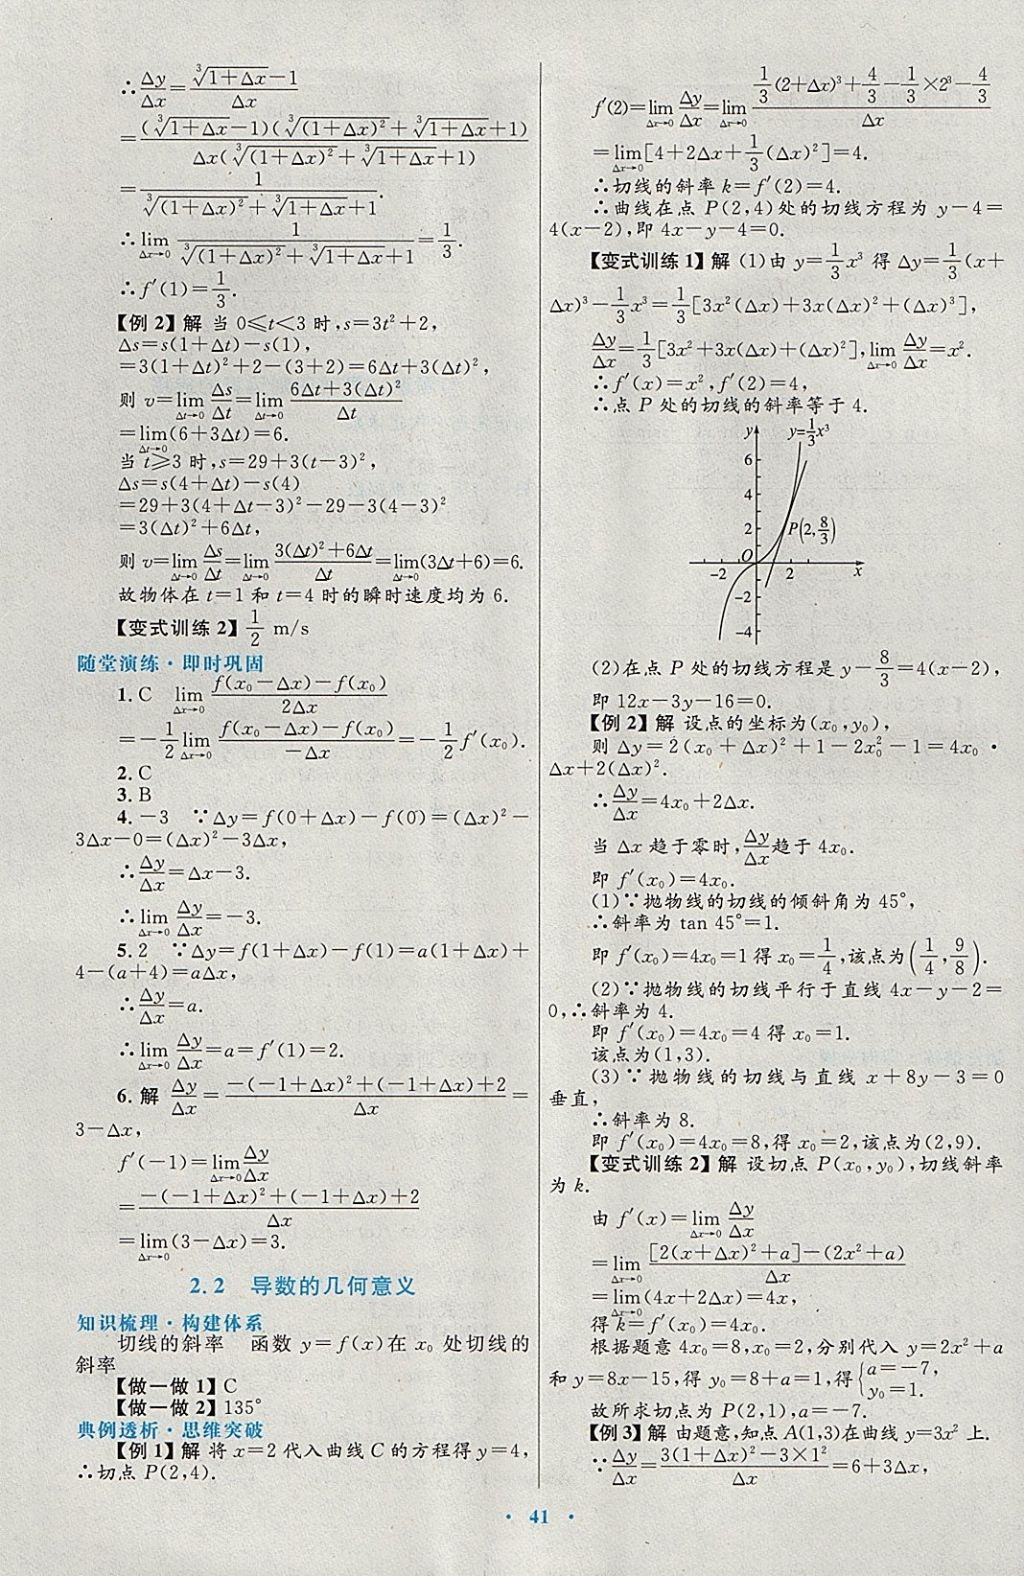 ∴Δy/Δx=(∛(1+Δx)-1)/Δx
=(∛(1+Δx)-1)(∛((1+Δx)²)+∛(1+Δx)+1)/(Δx(∛((1+Δx)²)+∛(1+Δx)+1))
=1/(∛((1+Δx)²)+∛(1+Δx)+1).
∴lim(Δx→0) 1/(∛((1+Δx)²)+∛(1+Δx)+1)=1/3.
∴f′(1)=1/3.
【例2】解 当 0≤t<3 时,s=3t²+2,
Δs=s(1+Δt)-s(1),
=3(1+Δt)²+2-(3+2)=6Δt+3(Δt)²,
则 v=lim(Δt→0) Δs/Δt=lim(Δt→0) (6Δt+3(Δt)²)/Δt
=lim(Δt→0)(6+3Δt)=6.
当 t≥3 时,s=29+3(t-3)²,
Δs=s(4+Δt)-s(4)
=29+3(4+Δt-3)²-29-3(4-3)²
=3(Δt)²+6Δt,
则 v=lim(Δt→0) Δs/Δt=lim(Δt→0) (3(Δt)²+6Δt)/Δt=lim(Δt→0)(3Δt+6)=6.
故物体在 t=1 和 t=4 时的瞬时速度均为 6.
【变式训练2】1/2 m/s
随堂演练·即时巩固
1.C lim(Δx→0) (f(x₀-Δx)-f(x₀))/(2Δx)
=-1/2 lim(Δx→0) (f(x₀-Δx)-f(x₀))/(-Δx)=-1/2 f′(x₀).
2.C
3.B
4.-3 ∵Δy=f(0+Δx)-f(0)=(Δx)²-
3Δx-0=(Δx)²-3Δx,
∴Δy/Δx=Δx-3.
∴lim(Δx→0) Δy/Δx=-3.
5.2 ∵Δy=f(1+Δx)-f(1)=a(1+Δx)+
4-(a+4)=aΔx,
∴Δy/Δx=a.
∴lim(Δx→0) Δy/Δx=a=f′(1)=2.
6.解 Δy/Δx=(-(-1+Δx)²+(-1+Δx)+2)/Δx=
3-Δx,
f′(-1)=lim(Δx→0) Δy/Δx
=(-(-1+Δx)²+(-1+Δx)+2)/Δx
=lim(Δx→0)(3-Δx)=3.
2.2 导数的几何意义
知识梳理·构建体系
切线的斜率 函数 y=f(x)在 x₀ 处切线的
斜率
【做一做1】C
【做一做2】135°
典例透析·思维突破
【例1】解 将 x=2代入曲线C的方程得y=4,
∴切点 P(2,4).
f′(2)=lim(Δx→0) Δy/Δx=lim(Δx→0) (1/3(2+Δx)³+4/3-1/3×2³-4/3)/Δx
=lim(Δx→0)[4+2Δx+1/3(Δx)²]=4.
∴切线的斜率 k=f′(2)=4.
∴曲线在点 P(2,4)处的切线方程为 y-4=
4(x-2),即 4x-y-4=0.
【变式训练1】解 (1)由 y=1/3x³ 得 Δy=1/3(x+
Δx)³-1/3x³=1/3[3x²(Δx)+3x(Δx)²+(Δx)³],
Δy/Δx=1/3[3x²+3x(Δx)+(Δx)²],lim(Δx→0) Δy/Δx=x².
∴f′(x)=x²,f′(2)=4,
∴点 P 处的切线的斜率等于 4.
y y=1/3x³
6
4
2
P(2,8/3)
O
-2 2 x
-2
-4
(2)在点 P 处的切线方程是 y-8/3=4(x-2),
即 12x-3y-16=0.
【例2】解 设点的坐标为(x₀,y₀),
则 Δy=2(x₀+Δx)²+1-2x₀²-1=4x₀·
Δx+2(Δx)².
∴Δy/Δx=4x₀+2Δx.
当 Δx 趋于零时,Δy/Δx趋于 4x₀.
即 f′(x₀)=4x₀.
(1)∵抛物线的切线的倾斜角为 45°,
∴斜率为 tan 45°=1.
即 f′(x₀)=4x₀=1得 x₀=1/4,该点为(1/4,9/8).
(2)∵抛物线的切线平行于直线 4x-y-2=
0,∴斜率为 4.
即 f′(x₀)=4x₀=4 得 x₀=1.
该点为(1,3).
(3)∵抛物线的切线与直线 x+8y-3=0
垂直,
∴斜率为 8.
即 f′(x₀)=4x₀=8,得 x₀=2,该点为(2,9).
【变式训练2】解 设切点 P(x₀,y₀),切线斜率
为 k.
由 f′(x)=lim(Δx→0) Δy/Δx
=lim(Δx→0) ([2(x+Δx)²+a]-(2x²+a))/Δx
=lim(Δx→0)(4x+2Δx)=4x,
得 k=f′(x₀)=4x₀.
根据题意 4x₀=8,x₀=2,分别代入 y=2x²+a
和 y=8x-15,得 y₀=8+a=1,得{a=-7, y₀=1.
故所求切点为 P(2,1),a=-7.
【例3】解 由题意,知点A(1,3)在曲线 y=3x² 上.
∵Δy/Δx=(3(1+Δx)²-3×1²)/Δx=6+3Δx,
·41·